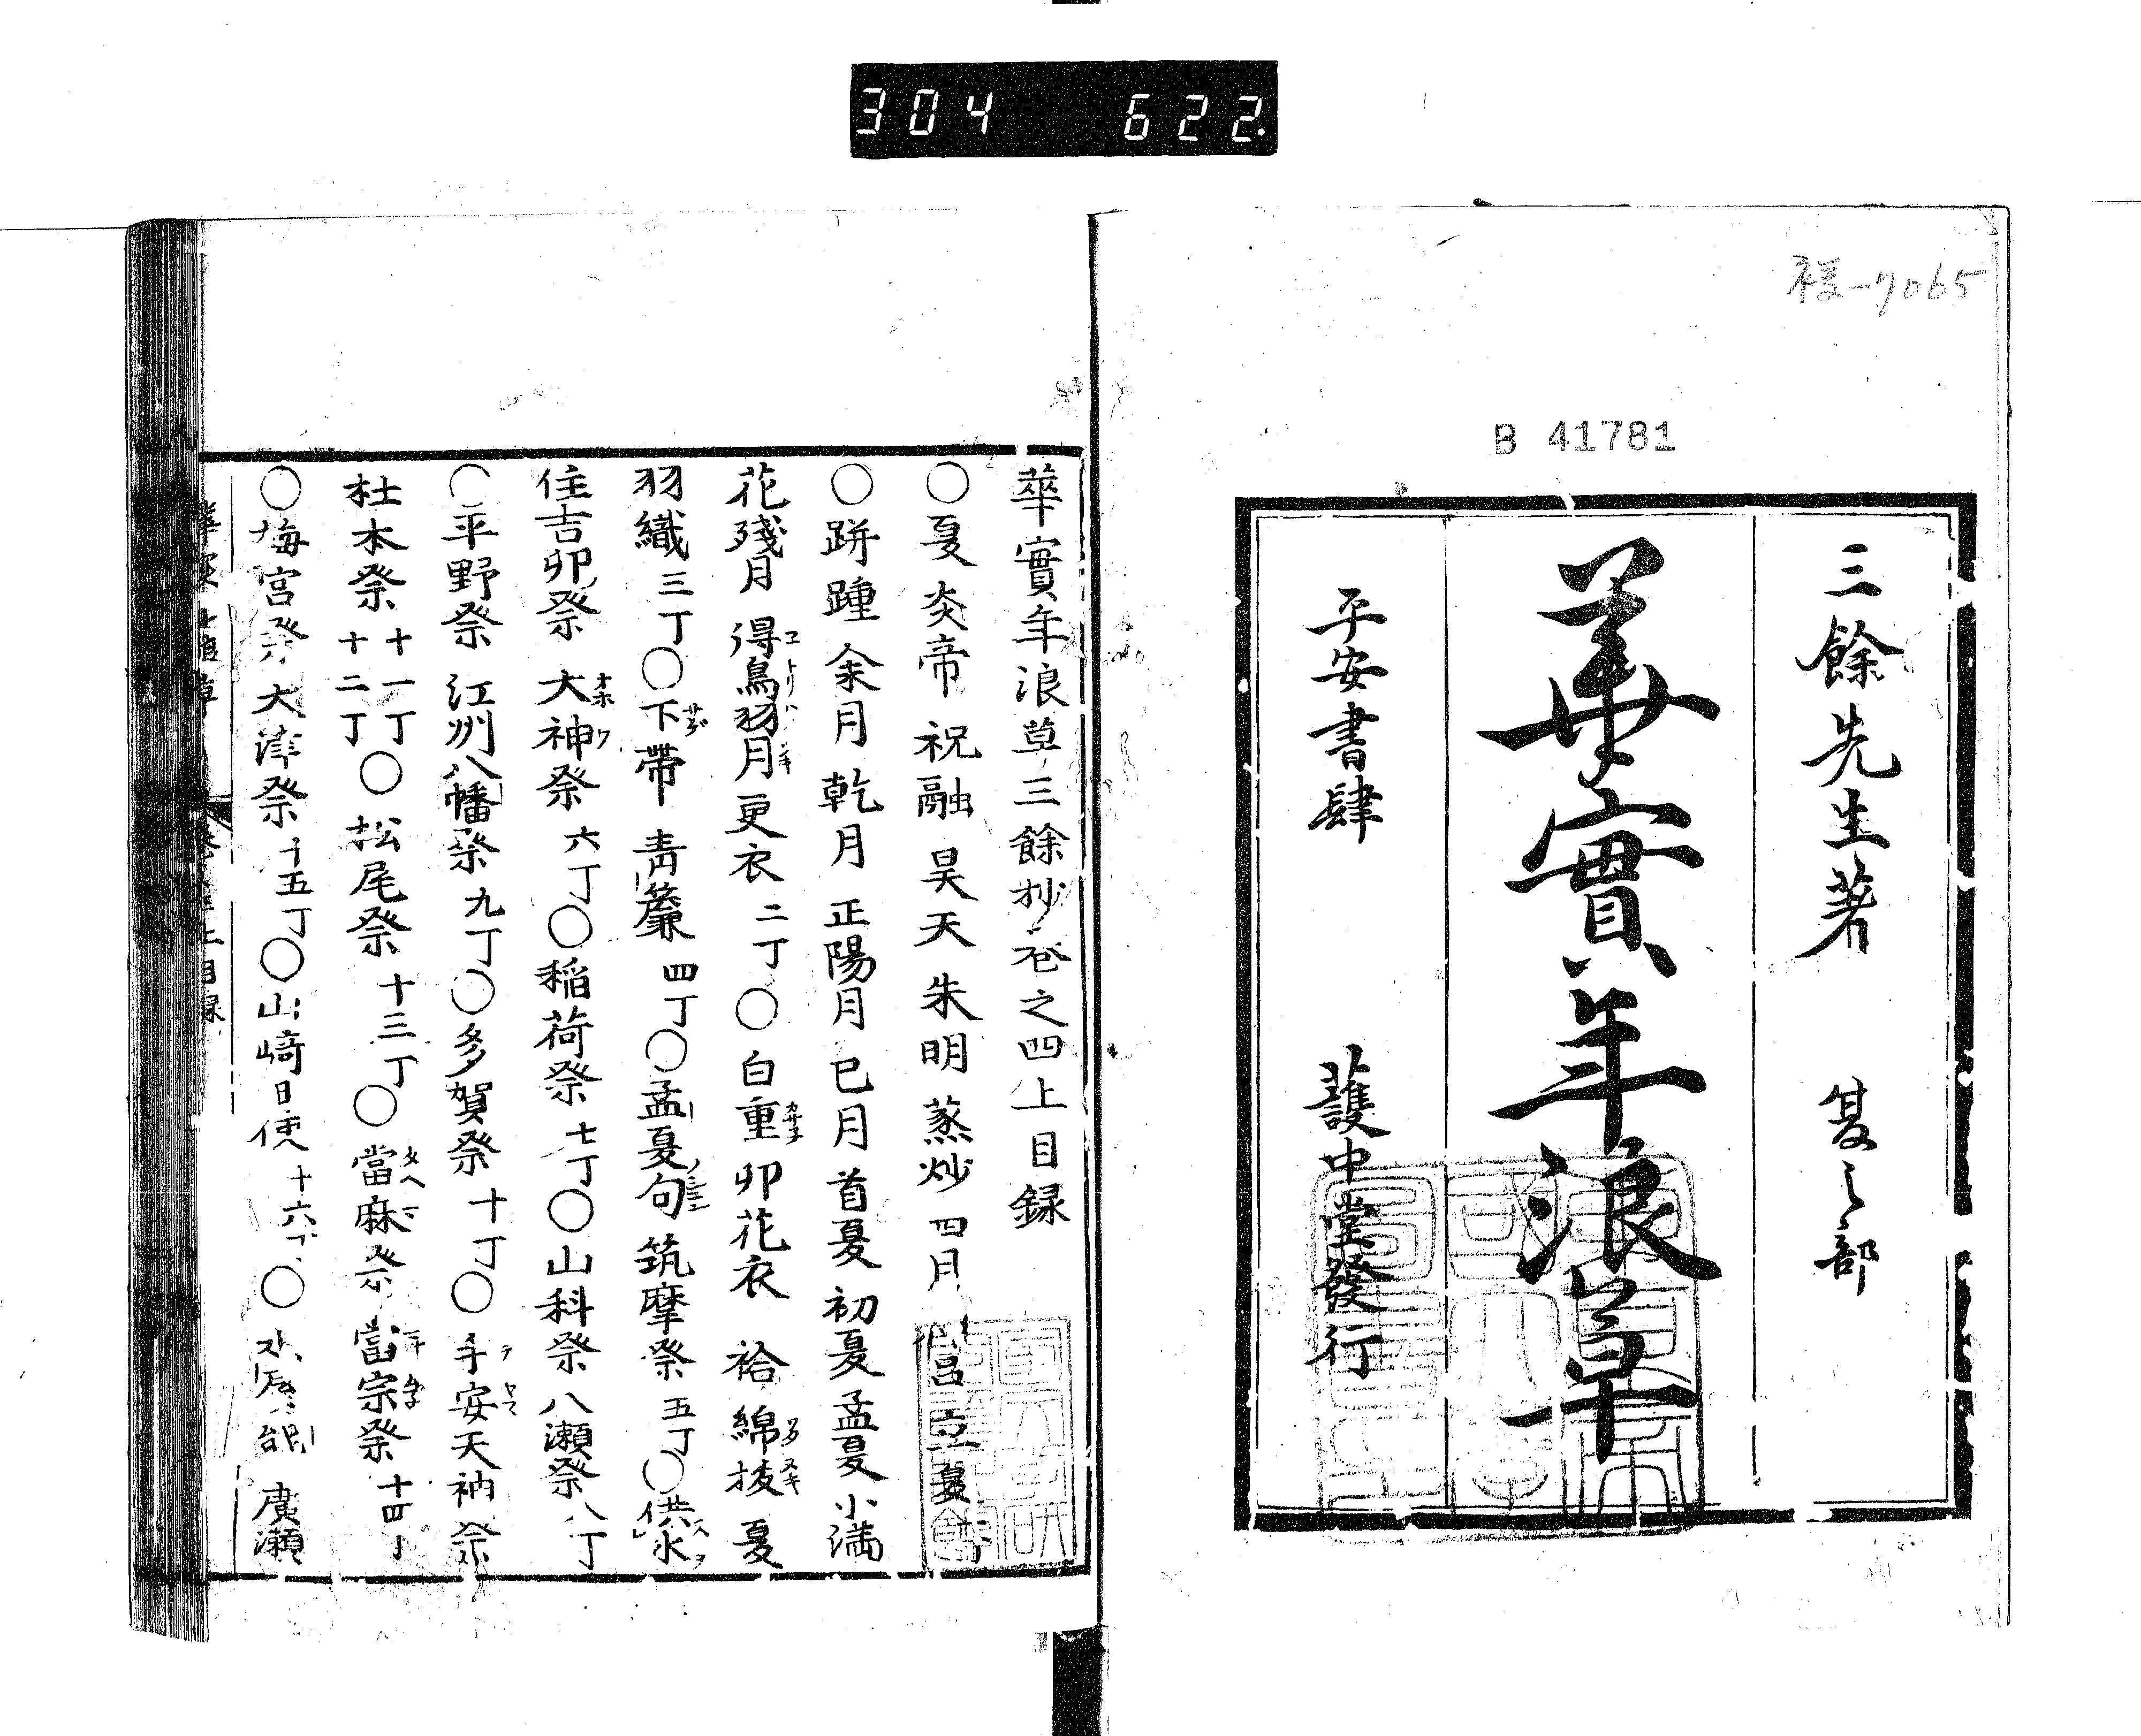 304 622
B 41781
三餘先生著 夏之部
華實年浪草
平安書肆 護中堂發行
華實年浪草三餘抄卷之四上目録
○夏 炎帝 祝融 昊天 朱明 蒸炒 四月 仲呂 立夏
○跰踵 余月 乾月 正陽月 已月 首夏 初夏 孟夏 小満
花殘月 得鳥羽月 更衣 二丁○白重 卯花衣 袷 綿抜 夏
羽織 三丁○下帶 青簾 四丁○孟夏旬 筑摩祭 五丁○供氷
住吉卯祭 大神祭 六丁○稲荷祭 七丁○山科祭 八瀬祭 八丁
○平野祭 江州八幡祭 九丁○多賀祭 十丁○手安天神祭
杜本祭 十一丁 十二丁○松尾祭 十三丁○當麻祭 當宗祭 十四丁
○梅宮祭 大津祭 十五丁○山崎日使 十六丁○ 廣瀬